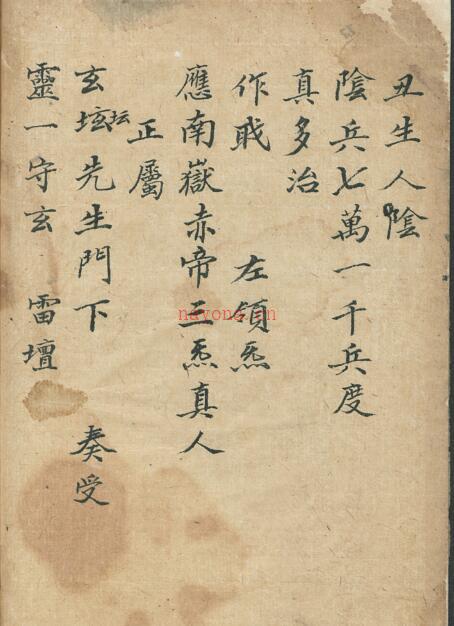 丑生人陰
陰兵七萬一千兵度
真多治
作 左領炁
應南嶽赤帝三炁真人
正屬
玄坛先生門下 奏受
靈一守玄 雷壇
nayona.cn